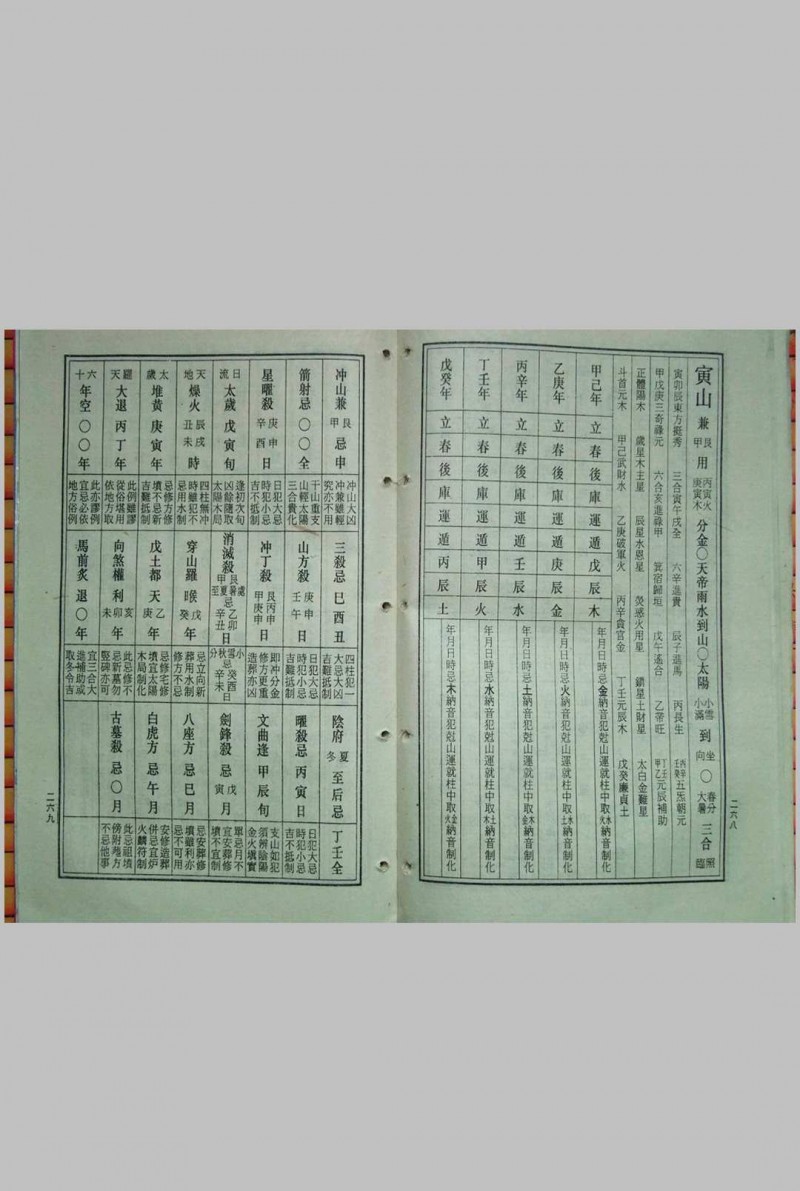 二六八
寅山兼艮甲用丙寅火庚寅木分金〇天帝雨水到山〇太陽小雪小滿到坐向〇春分大暑三合照臨
寅卯辰東方挺秀 三合寅午戌全 六辛進貴 辰子進馬 丙長生 丙辛壬癸五炁朝元
甲戊庚三奇祿元 六合亥進祿甲 箕宿歸垣 戊午遙合 乙帝旺 丁壬甲乙元辰補助
正體陽木 歲星木主星 辰星水恩星 熒惑火用星 鎮星土財星 太白金難星
斗首元木 甲己武財水 乙庚破軍火 丙辛貪官金 丁壬元辰木 戊癸廉貞土
甲己年立春後庫運遁戊辰木 年月日時忌金納音犯尅山運就柱中取火水納音制化
乙庚年立春後庫運遁庚辰金 年月日時忌火納音犯尅山運就柱中取土水納音制化
丙辛年立春後庫運遁壬辰水 年月日時忌土納音犯尅山運就柱中取金木納音制化
丁壬年立春後庫運遁甲辰火 年月日時忌水納音犯尅山運就柱中取木土納音制化
戊癸年立春後庫運遁丙辰土 年月日時忌木納音犯尅山運就柱中取火金納音制化
冲山兼艮甲忌申 冲山大凶冲兼雖經究亦不用 三殺忌巳酉丑 四柱犯一大忌大凶吉難抵制 陰府夏冬至后忌丁壬全
箭射忌〇〇全 干山重支山輕太陽三合貴化 山方殺庚申壬午日 日犯大忌時犯小忌吉難抵制 曜殺忌丙寅日 日犯大忌時犯小忌吉不抵制
星曜殺庚申辛酉日 日犯大忌時犯小忌吉不抵制 冲丁殺艮丙申甲庚申日 即冲分金修方更重造葬亦凶 文曲逢甲辰旬 支山如犯須辨陰陽金火塡實
日流太歲戊寅旬 逢初次旬凶餘隨取太陽木局 消滅殺艮處暑忌乙卯甲夏至辛丑日 小雪忌癸酉秋分辛未日 劍鋒殺忌戊寅月 單忌月不宜安葬修墳不宜制
天地燥火辰戌丑未時 四柱無冲時雖犯不忌用水制 穿山羅睺戊癸年 忌立向新葬用水制修方不忌 八座方忌巳月 忌安葬修墳雖利亦忌不可用
太歲堆黄庚寅年 忌修方修墳不忌新吉難抵制 戊土都天乙庚年 忌修宅修墳宜太陽木局制化 白虎方忌午月 安修造葬併忌宜炉火麟符制
羅天大退丙丁年 此例雖謬從俗堪用依地方取 向煞權利亥卯未年 此忌修不忌新墓勿竪碑亦可 古墓殺忌〇月 此忌祖墳傍附墖方不忌他事
六十年空〇〇年 此亦謬例宜忌必依地方俗例 馬前炙退〇年 宜三合大進補助或取冬令吉
二六九